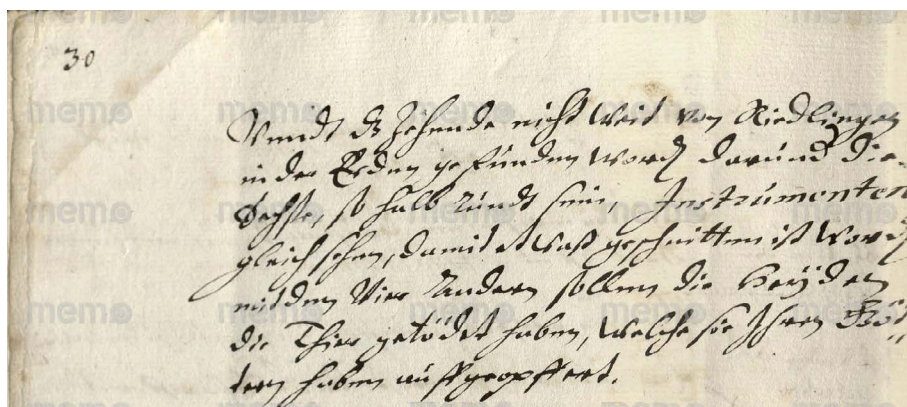 30
Vnndt dz Zehende nicht weit von Riedlingen
in der Erden gefunden word, darund die
Sechste, so halb rundt sein, Instrumenten
gleich sehen, damit etwaß geschnitten ist word
mit den Vier andern sollen die Heÿden
die Thier getödet haben, welche sie Ihren Göt„
tern haben auffgeopffert.